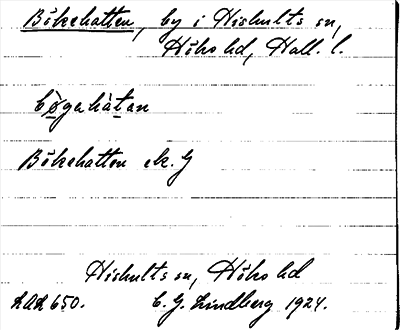 Bökehatten, by i Hishults sn,
Höks hd, Hall. l.
bø̀gahàtan
Bökehatten ek. G
Hishults sn, Höks hd
KAK 650. C. G. Lindberg 1924.